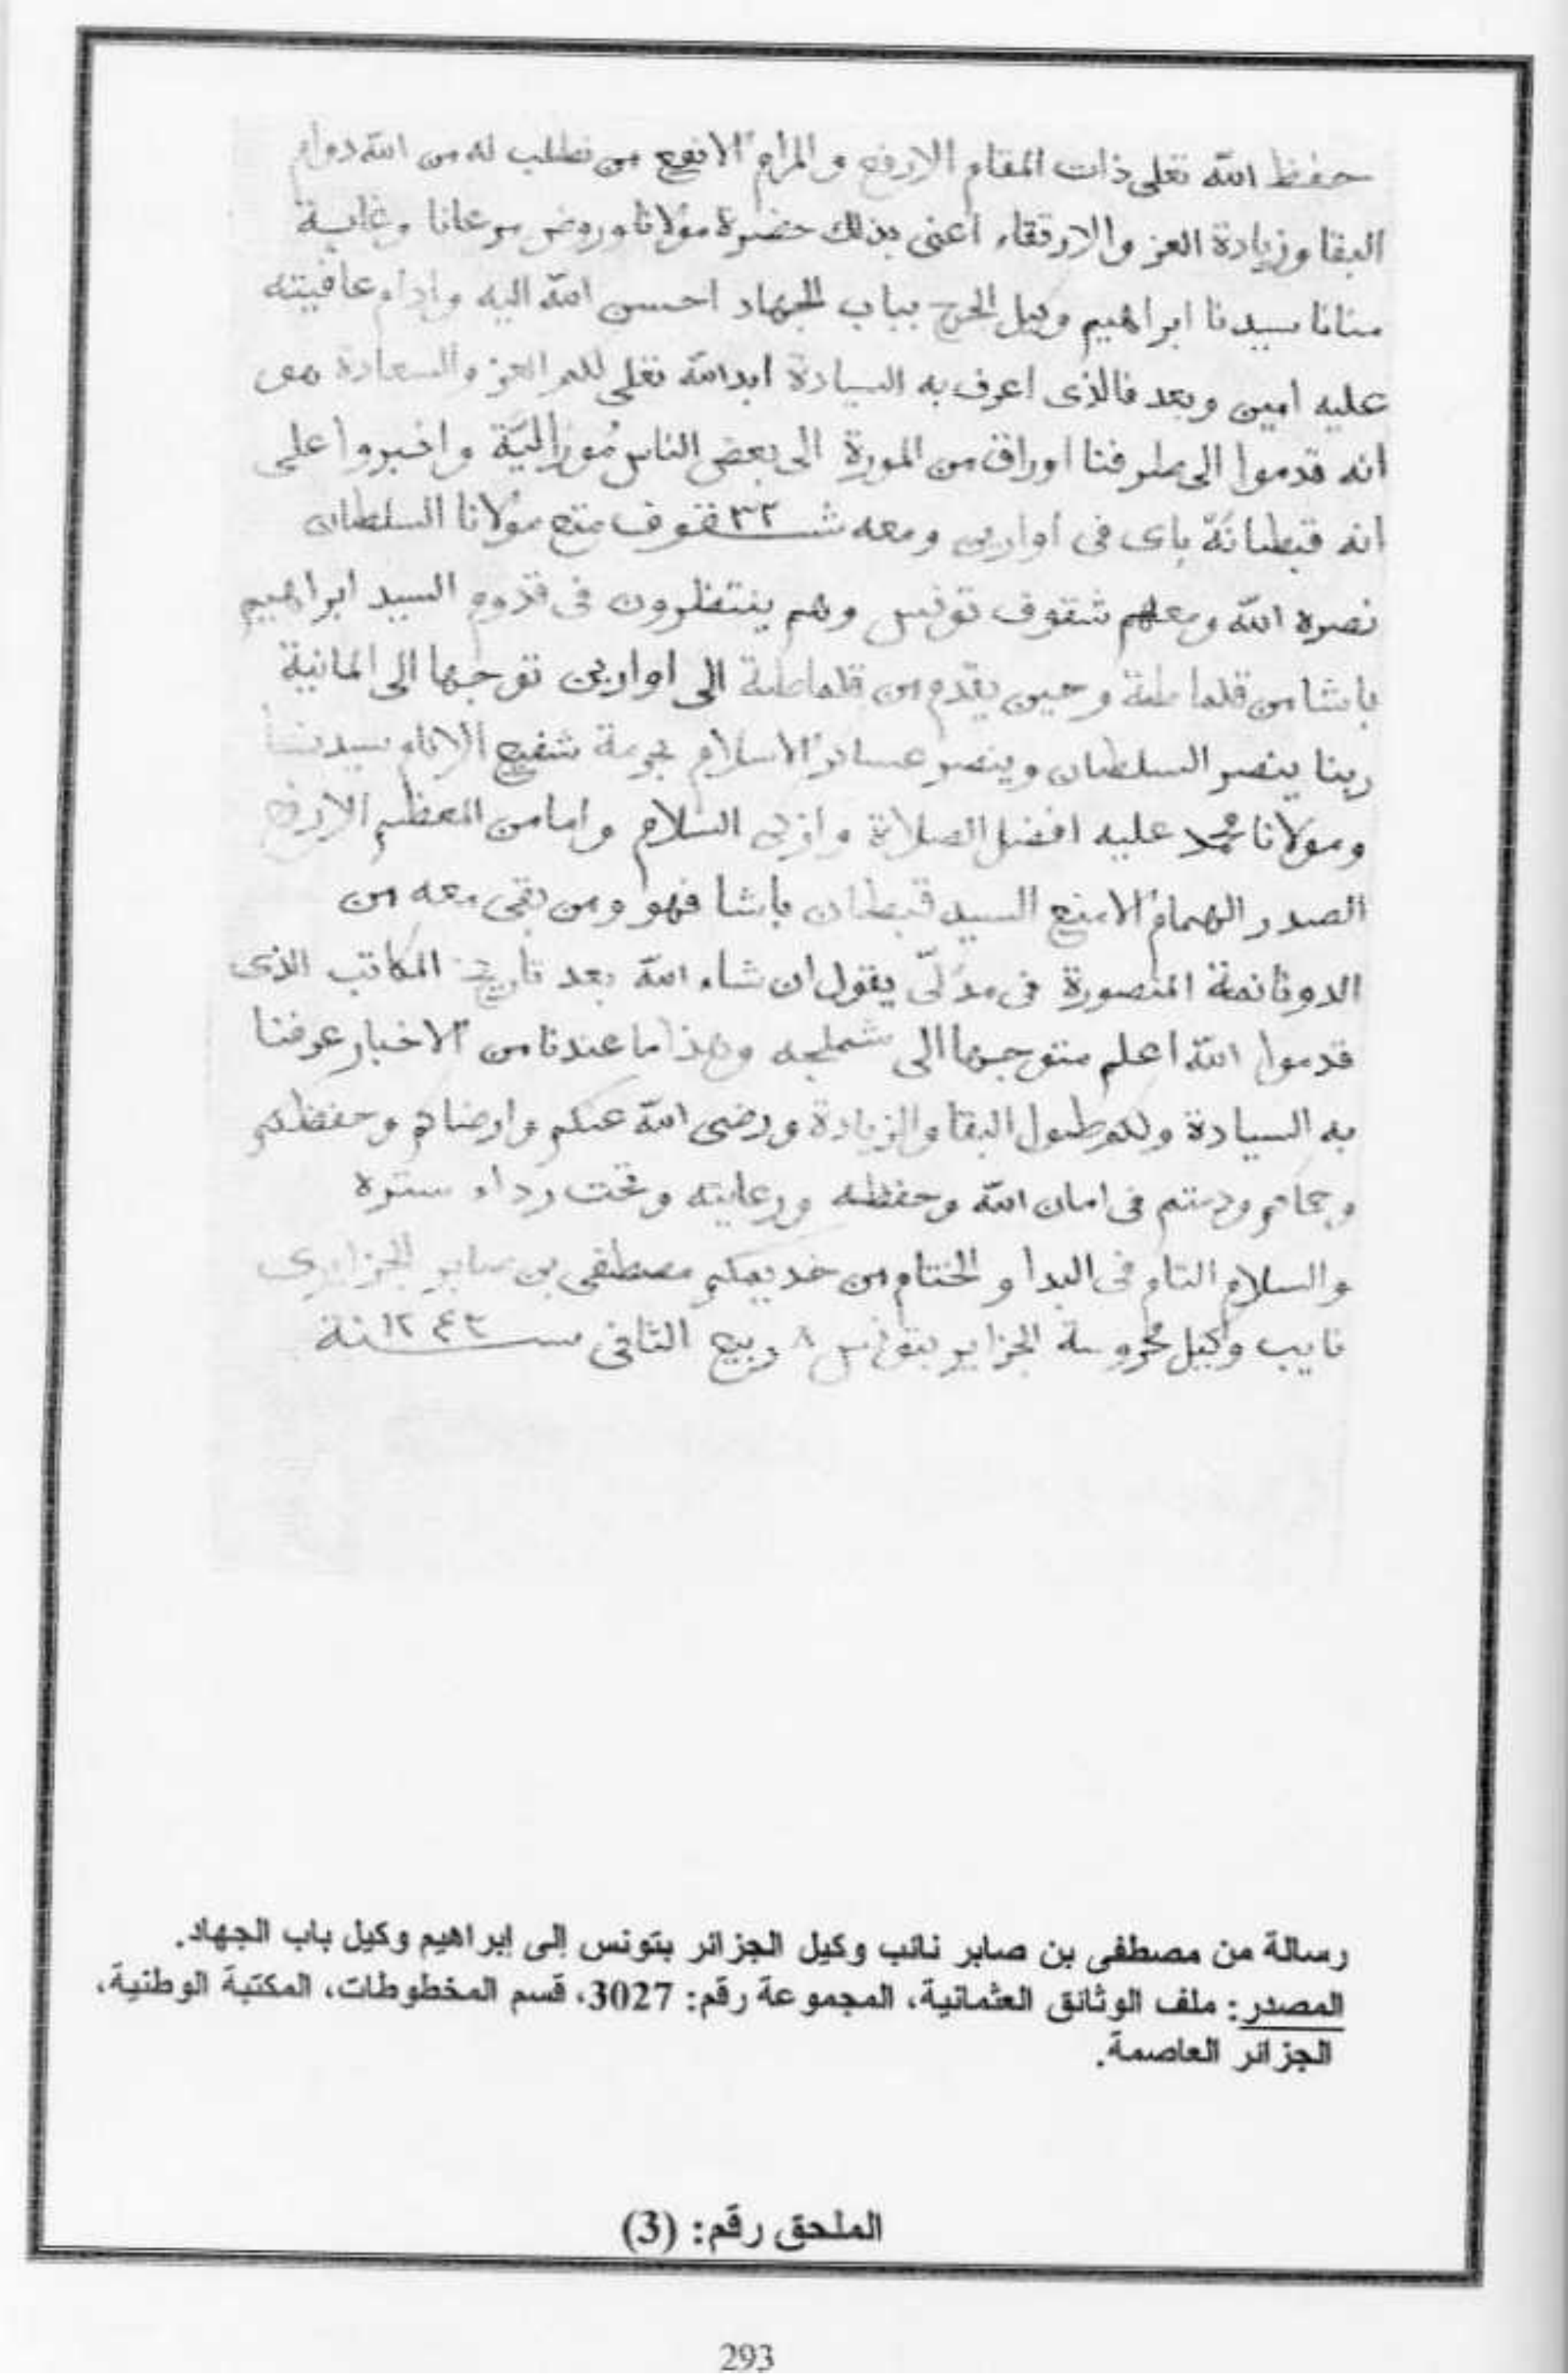 حفظ الله تعلى ذات المقام الارفع والمرام الانفع من نطلب له من الله دوام
البقا وزيادة العز والارتقاء اعنى بذلك حضرة مولانا وروض مرعانا وغاية
منانا سيدنا ابراهيم وكيل الحرج بباب الجهاد احسن الله اليه وادام عافيته
عليه امين وبعد فالذى اعرف به السيادة ابد الله تعلى لكم العز والسعادة هو
انه قدموا الى طرفنا اوراق من المورة الى بعض الناس مورالية واخبروا على
انه قبطانة باى فى اوارين ومعه شقوف ٣٢ متع مولانا السلطان
نصره الله ومعهم شقوف تونس وهم ينتظرون فى قدوم السيد ابراهيم
باشا من قلماطة وحين يقدم من قلماطة الى اوارين توجها الى المانية
ربنا ينصر السلطان وينصر عساكر الاسلام بحرمة شفيع الانام سيدنا
ومولانا محمد عليه افضل الصلاة وازكى السلام واما من المعظم الارفع
الصدر الهمام الامنع السيد قبطان باشا فهو ومن بقى معه من
الدونانمة المنصورة فى مدلّى يقول ان شاء الله بعد تاريخ المكاتب الذى
قدموا الله اعلم متوجها الى شملجه وهذا ما عندنا من الاخبار عرفنا
به السيادة ولكم طول البقا والزيادة ورضى الله عنكم وارضاكم وحفظكم
وحماكم ودمتم فى امان الله وحفظه ورعايته وتحت رداء ستره
والسلام التام فى البدا والختام من خديمكم مصطفى بن صابر الجزايرى
نايب وكيل محروسة الجزاير بتونس ٨ ربيع الثانى سنة ١٢٤٣
رسالة من مصطفى بن صابر نائب وكيل الجزائر بتونس إلى إبراهيم وكيل باب الجهاد.
المصدر: ملف الوثائق العثمانية، المجموعة رقم: 3027، قسم المخطوطات، المكتبة الوطنية،
الجزائر العاصمة.
الملحق رقم: (3)
293